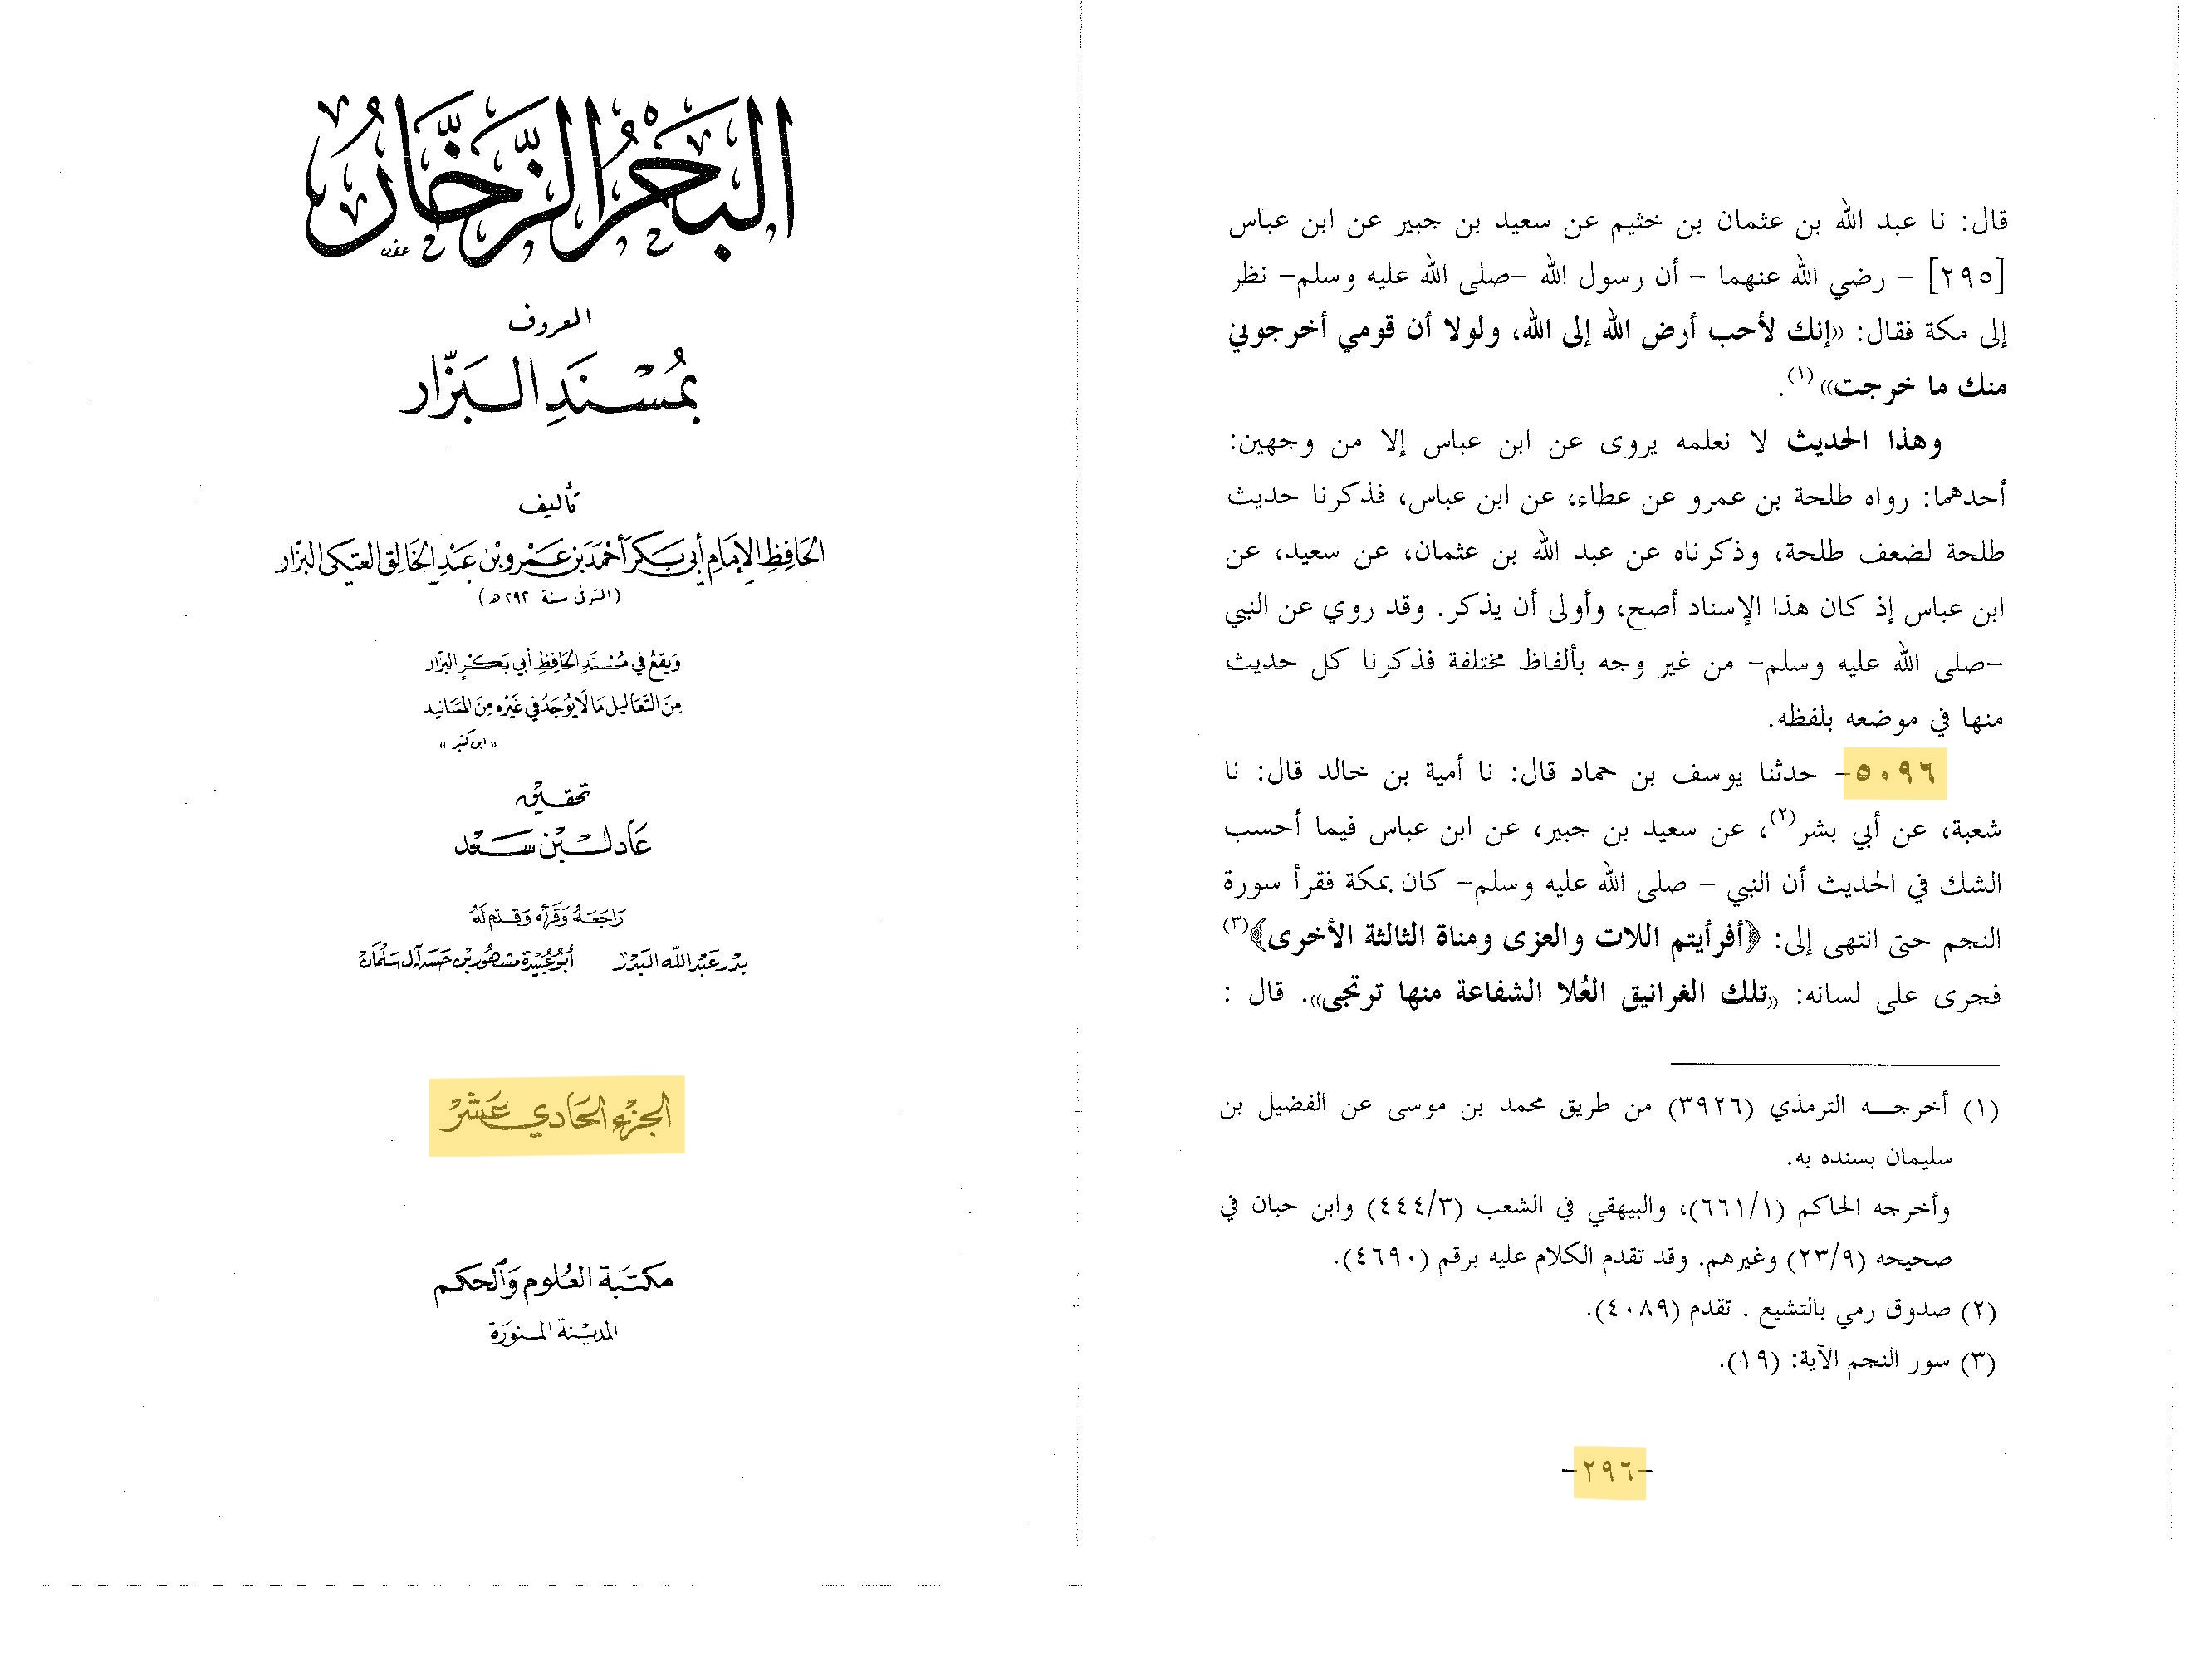 البحر الزخار
المعروف
بمسند البزار
تأليف
الحافظ الإمام أبي بكر أحمد بن عمرو بن عبد الخالق العتكي البزار
(المتوفى سنة ٢٩٢ هـ)
ويقع في مسند الحافظ أبي بكر البزار
من التعاليل ما لا يوجد في غيره من المسانيد
« ابن كثير »
تحقيق
عادل بن سعد
راجعه وقرأه وقدم له
بدر عبد الله البدر أبو عبيدة مشهور بن حسن آل سلمان
الجزء الحادي عشر
مكتبة العلوم والحكم
المدينة المنورة
قال: نا عبد الله بن عثمان بن خثيم عن سعيد بن جبير عن ابن عباس
[٢٩٥] – رضي الله عنهما – أن رسول الله –صلى الله عليه وسلم– نظر
إلى مكة فقال: «إنك لأحب أرض الله إلى الله، ولولا أن قومي أخرجوني
منك ما خرجت»(١).
وهذا الحديث لا نعلمه يروى عن ابن عباس إلا من وجهين:
أحدهما: رواه طلحة بن عمرو عن عطاء، عن ابن عباس، فذكرنا حديث
طلحة لضعف طلحة، وذكرناه عن عبد الله بن عثمان، عن سعيد، عن
ابن عباس إذ كان هذا الإسناد أصح، وأولى أن يذكر. وقد روي عن النبي
–صلى الله عليه وسلم– من غير وجه بألفاظ مختلفة فذكرنا كل حديث
منها في موضعه بلفظه.
٥٠٩٦– حدثنا يوسف بن حماد قال: نا أمية بن خالد قال: نا
شعبة، عن أبي بشر(٢)، عن سعيد بن جبير، عن ابن عباس فيما أحسب
الشك في الحديث أن النبي – صلى الله عليه وسلم– كان بمكة فقرأ سورة
النجم حتى انتهى إلى: ﴿أفرأيتم اللات والعزى ومناة الثالثة الأخرى﴾(٣)
فجرى على لسانه: «تلك الغرانيق العُلا الشفاعة منها ترتجى». قال :
(١) أخرجه الترمذي (٣٩٢٦) من طريق محمد بن موسى عن الفضيل بن
سليمان بسنده به.
وأخرجه الحاكم (٦٦١/١)، والبيهقي في الشعب (٤٤٤/٣) وابن حبان في
صحيحه (٢٣/٩) وغيرهم. وقد تقدم الكلام عليه برقم (٤٦٩٠).
(٢) صدوق رمي بالتشيع . تقدم (٤٠٨٩).
(٣) سور النجم الآية: (١٩).
–٢٩٦–